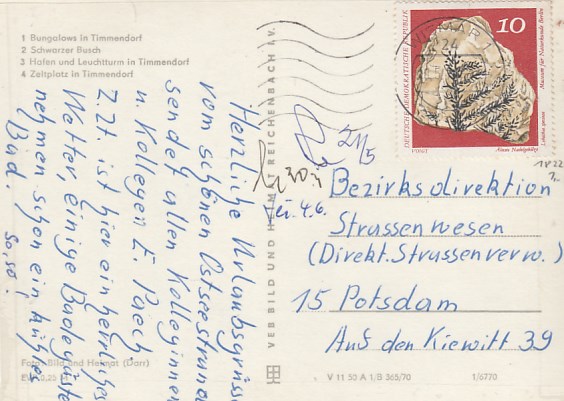 1 Bungalows in Timmendorf
2 Schwarzer Busch
3 Hafen und Leuchtturm in Timmendorf
4 Zeltplatz in Timmendorf
Herzliche Urlaubsgrüsse
vom schönen Ostseestrand
sendet allen Kolleginnen
u. Kollegen E. Paech.
Z.Zt ist hier ein herrliches
Wetter, einige Badegäste
nehmen schon ein kühles
Bad.
Foto: Bild und Heimat (Darr)
VEB BILD UND HEIMAT REICHENBACH i.V.
DEUTSCHE DEMOKRATISCHE REPUBLIK
10
Museum für Naturkunde Berlin
21/5
Bezirksdirektion
Strassenwesen
(Direkt. Strassenverw.)
15 Potsdam
Auf den Kiewitt 39
V 11 50 A 1/B 365/70
1/6770